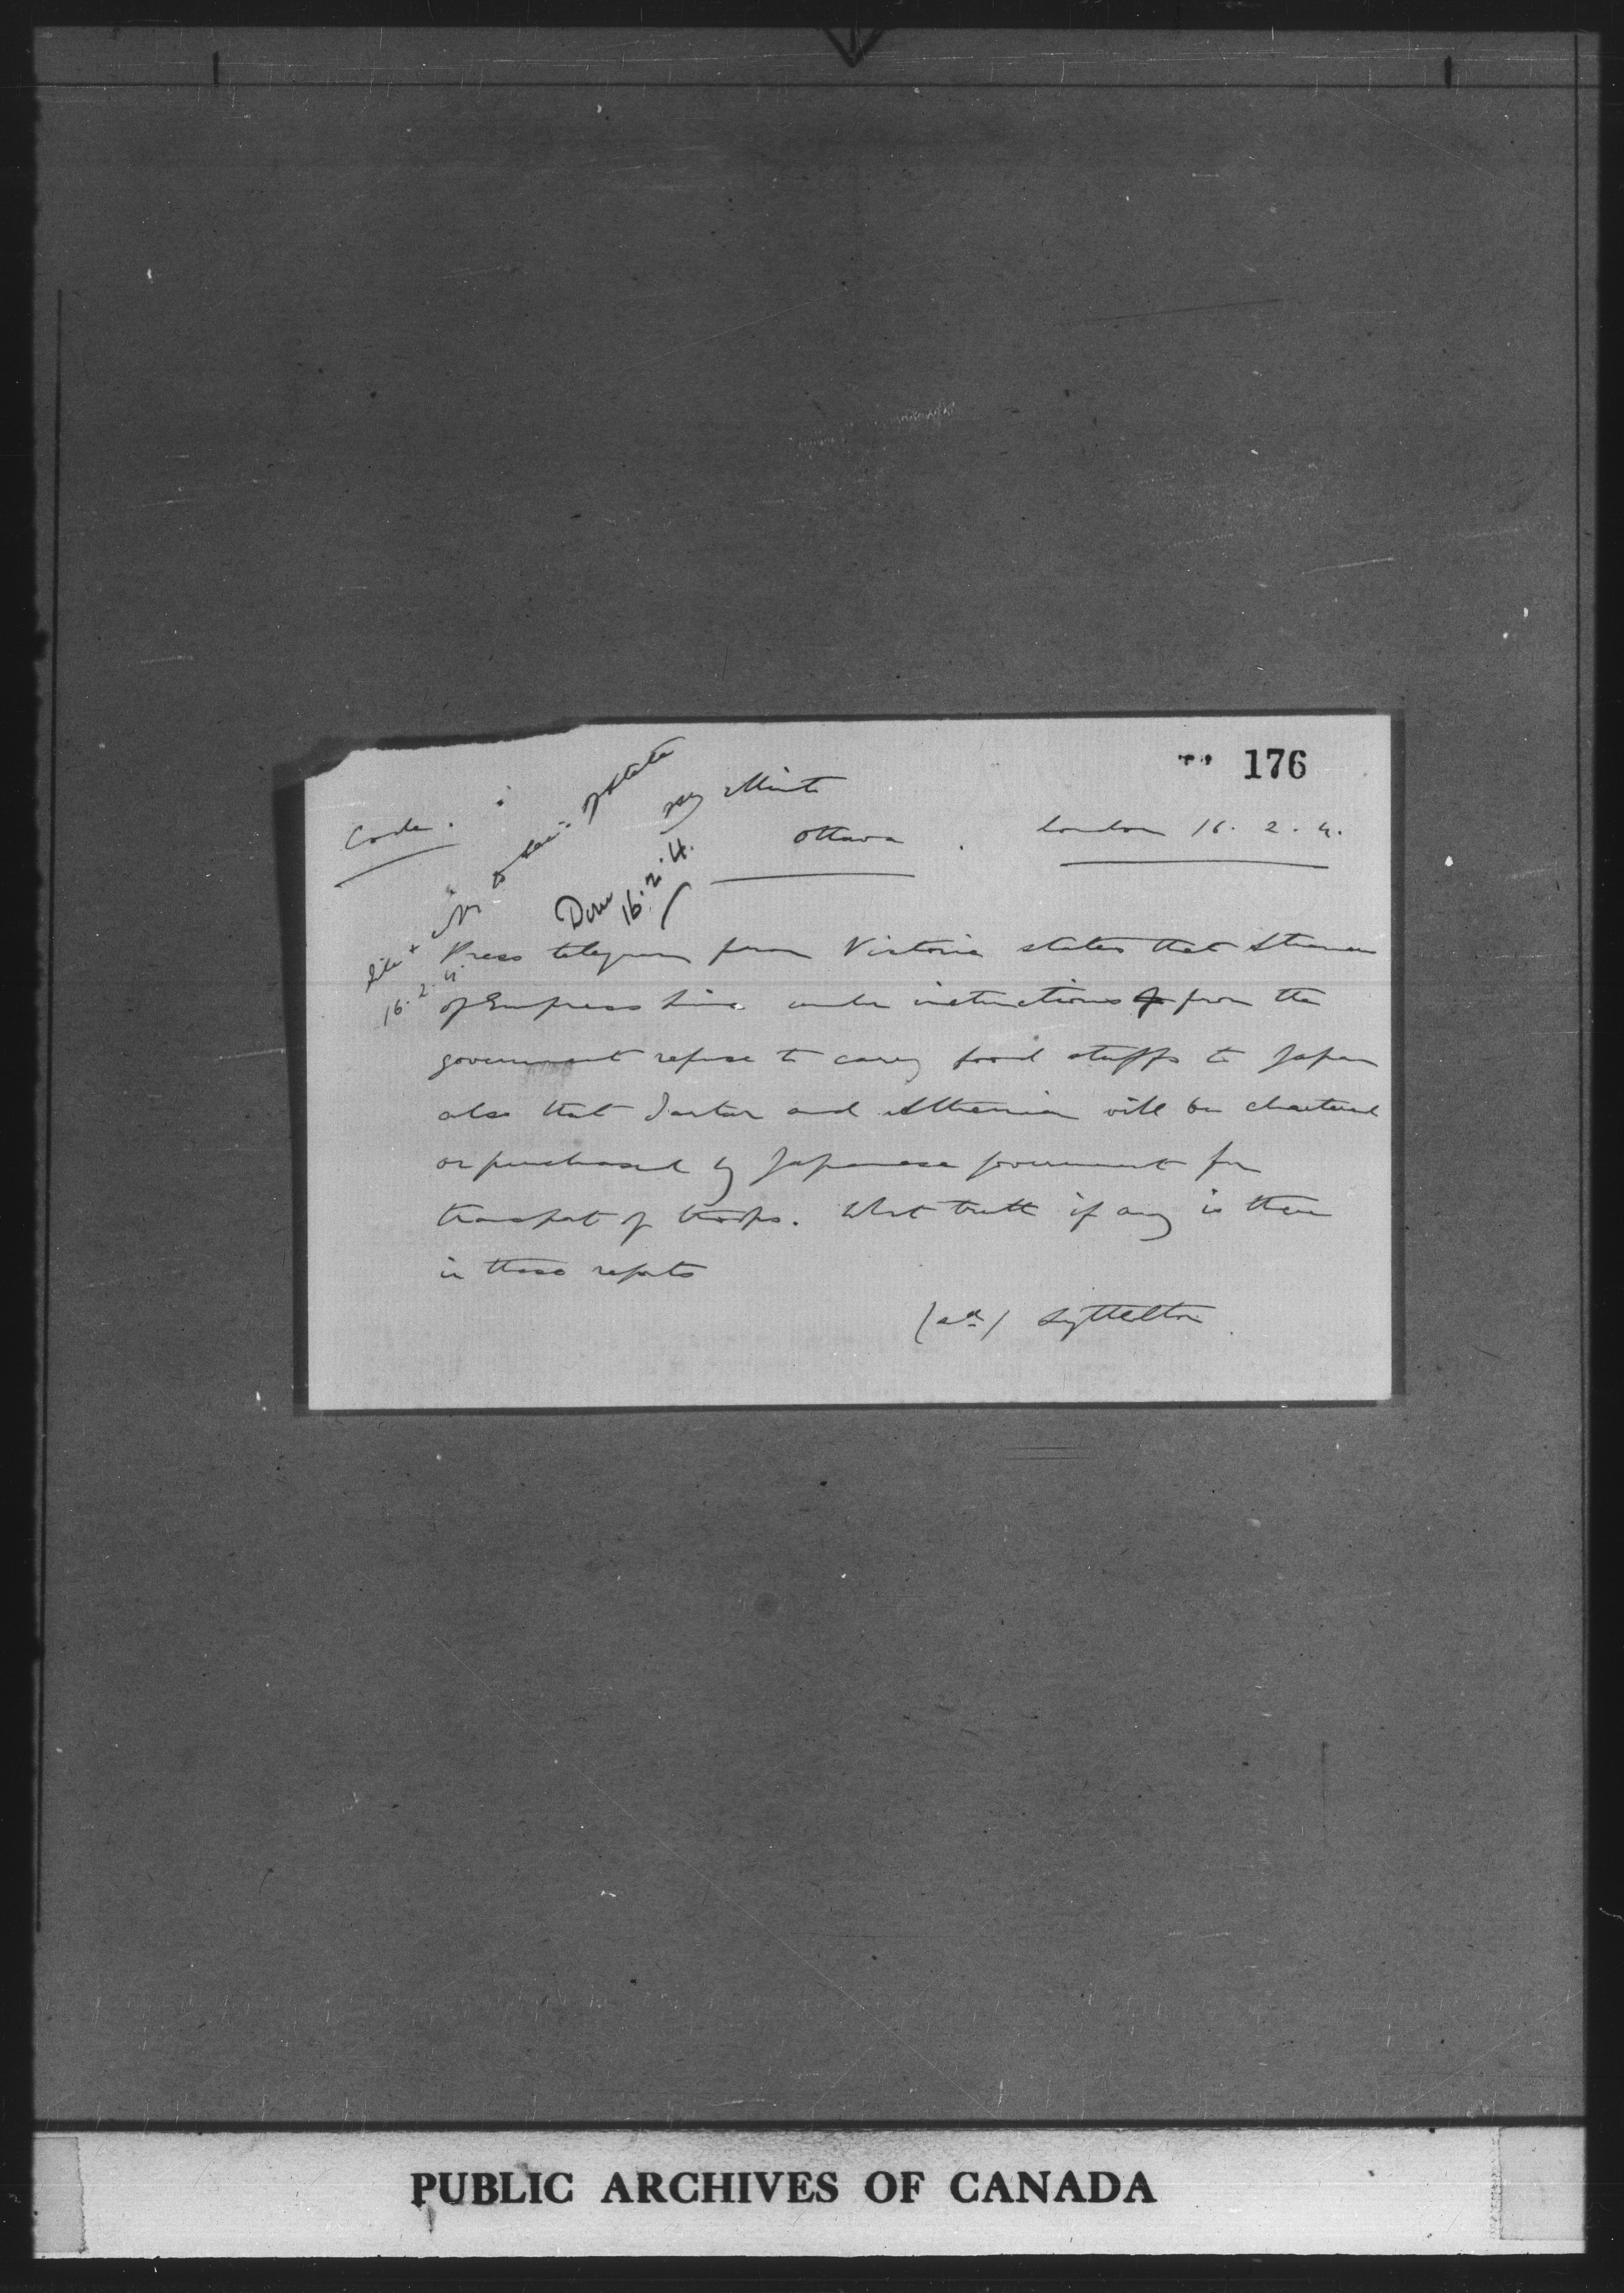 176
Code.
Minto
Ottawa.
London 16. 2. 4.
of State
Done
16.2.4.
16. 2. 4.
Press telegram from Victoria states that Steamers
of Empress Line under instructions from the
government refuse to carry food stuffs to Japan
also that Tartar and Athenian will be chartered
or purchased by Japanese government for
transport of troops. What truth if any is there
in these reports
(sd) Lyttelton
PUBLIC ARCHIVES OF CANADA